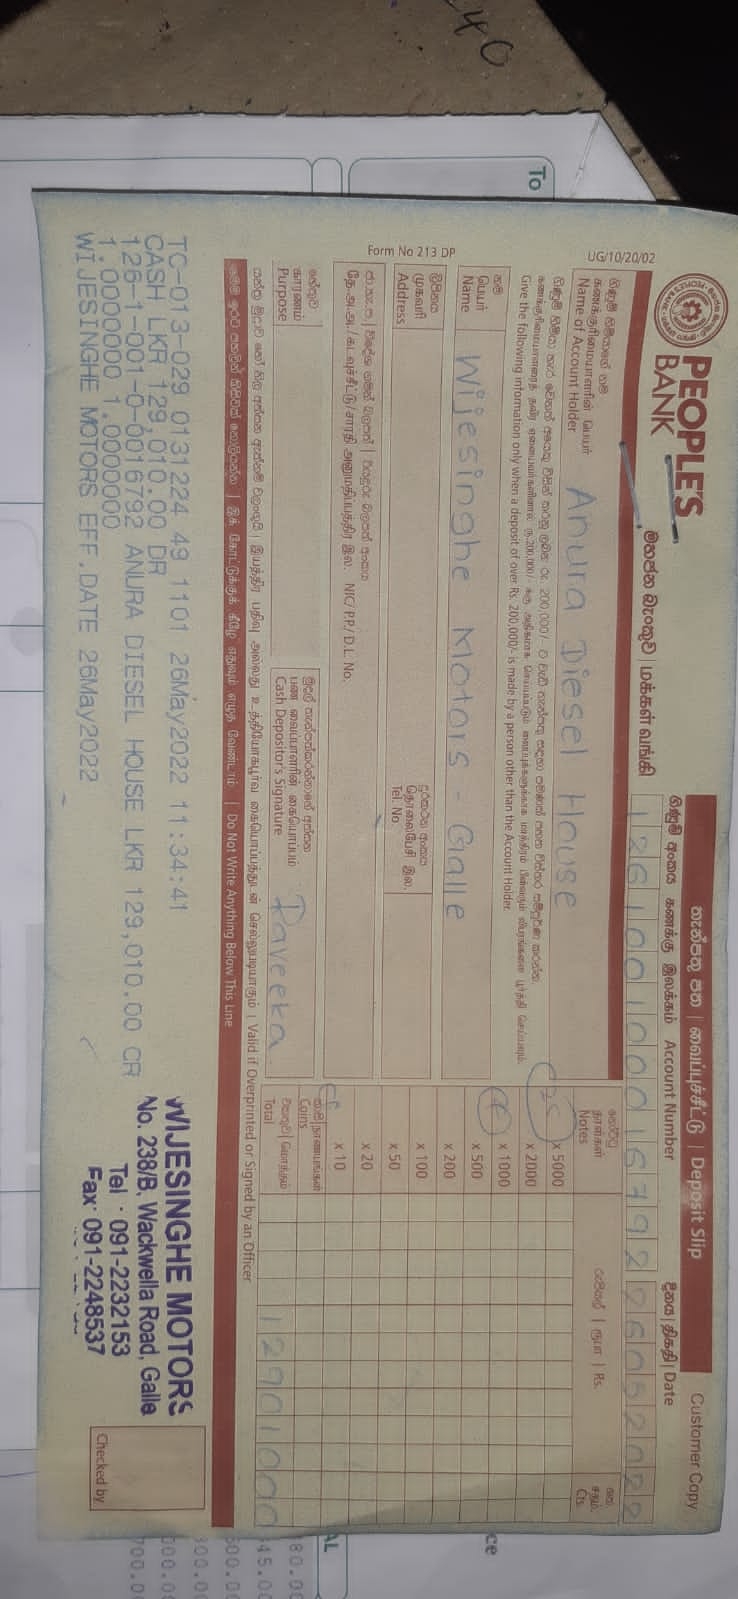 UG/10/20/02
PEOPLE'S
BANK
මහජන බැංකුව | மக்கள் வங்கி
තැන්පතු පත | வைப்புச்சீட்டு | Deposit Slip
Customer Copy
ගිණුම් අංකය கணக்கு இலக்கம் Account Number
දිනය | திகதி | Date
126100100016792
26052022
ගිණුම් හිමියාගේ නම
கணக்குரிமையாளரின் பெயர்
Name of Account Holder
Anura Diesel House
Give the following information only when a deposit of over Rs. 200,000/- is made by a person other than the Account Holder.
නම
பெயர்
Name
Wijesinghe Motors - Galle
ලිපිනය
முகவரி
Address
දුරකථන අංකය
தொலைபேசி இல.
Tel. No
Form No 213 DP
NIC/P.P./D.L. No.
හේතුව
காரணம்
Purpose
මුදල් තැන්පත්කරන්නාගේ අත්සන
பண வைப்பாளரின் கையொப்பம்
Cash Depositor's Signature
Raveeka
නෝට්ටු
தாள்கள்
Notes
රුපියල් | ரூபா | Rs.
ශත
சதம்
Cts.
25
x 5000
x 2000
4
x 1000
x 500
x 200
x 100
x 50
x 20
x 10
காசி | நாணயங்கள்
Coins
එකතුව | மொத்தம்
Total
12901000
Valid if Overprinted or Signed by an Officer
Do Not Write Anything Below This Line
TC-013-029 0131224 49 1101 26May2022 11:34:41
CASH LKR 129,010.00 DR
126-1-001-0-0016792 ANURA DIESEL HOUSE LKR 129,010.00 CR
1.0000000 1.0000000
WIJESINGHE MOTORS EFF.DATE 26May2022
WIJESINGHE MOTORS
No. 238/B, Wackwella Road, Galle
Tel : 091-2232153
Fax: 091-2248537
Checked by
To
40